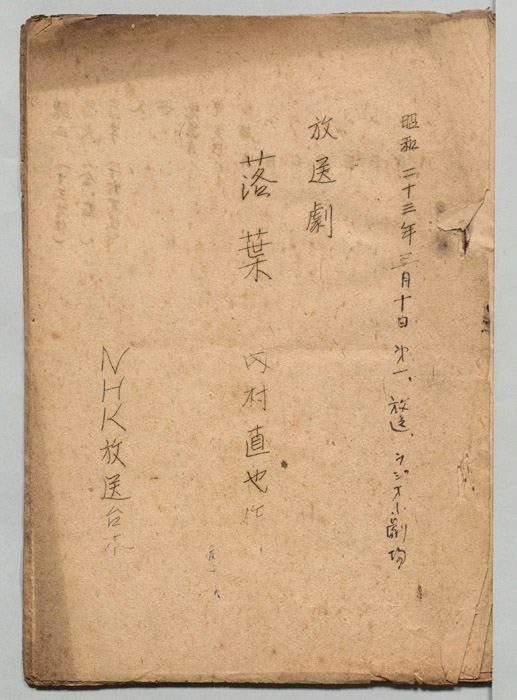 昭和二十三年三月十日 第一、放送、ラジオ小劇場
放送劇
落葉 内村直也作
NHK放送台本